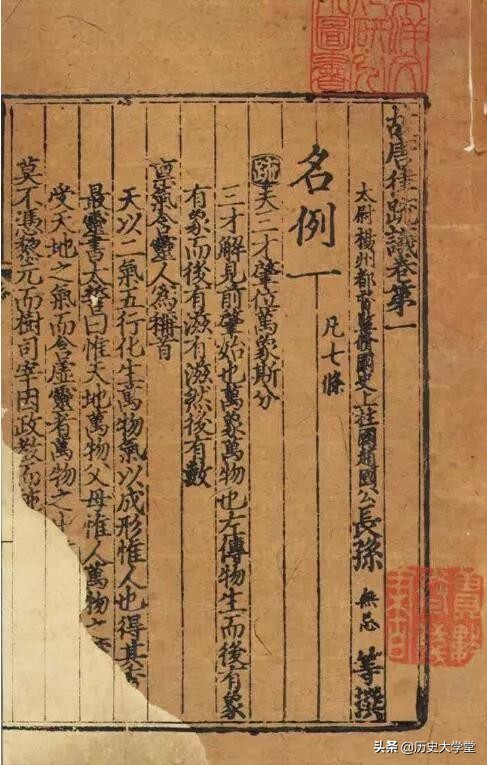 故唐律疏議卷第一
太尉楊州都督監修國史上柱國趙國公長孫無忌等撰
名例一 凡七條
疏夫三才肇位萬象斯分
三才解見前肇始也萬象萬物也左傳物生而後有象
有象而後有滋有滋然後有數
稟氣含靈人爲稱首
天以二氣五行化生萬物氣以成形惟人也得其
最靈書太誓曰惟天地萬物父母惟人萬物之
受天地之氣而含虛靈者萬物之
莫不憑黎元而樹司宰因政教而
头条 @历史大学堂